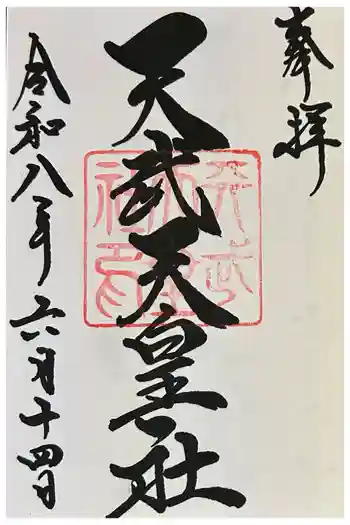 奉拝
天武天皇社
令和八年六月十四日